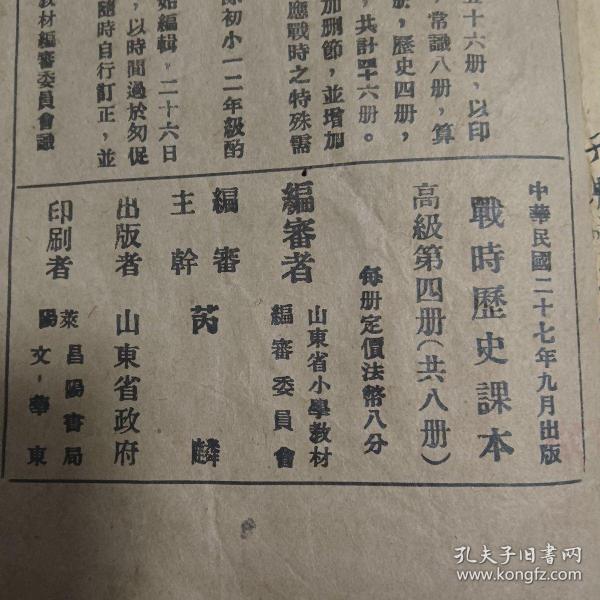 五十六册，以印
常識八册，算
歷史四册，
共計四十六册。
加删節，並增加
應戰時之特殊需
初小一二年級酌
始編輯，二十六日
以時間過於匆促
隨時自行訂正，並
教材編審委員會識
中華民國二十七年九月出版
戰時歷史課本
高級第四册（共八册）
每册定價法幣八分
編審者
山東省小學教材
編審委員會
編審
主幹
芮麟
出版者
山東省政府
印刷者
萊昌陽書局
陽文·華東
孔夫子旧书网
www.kongfz.com